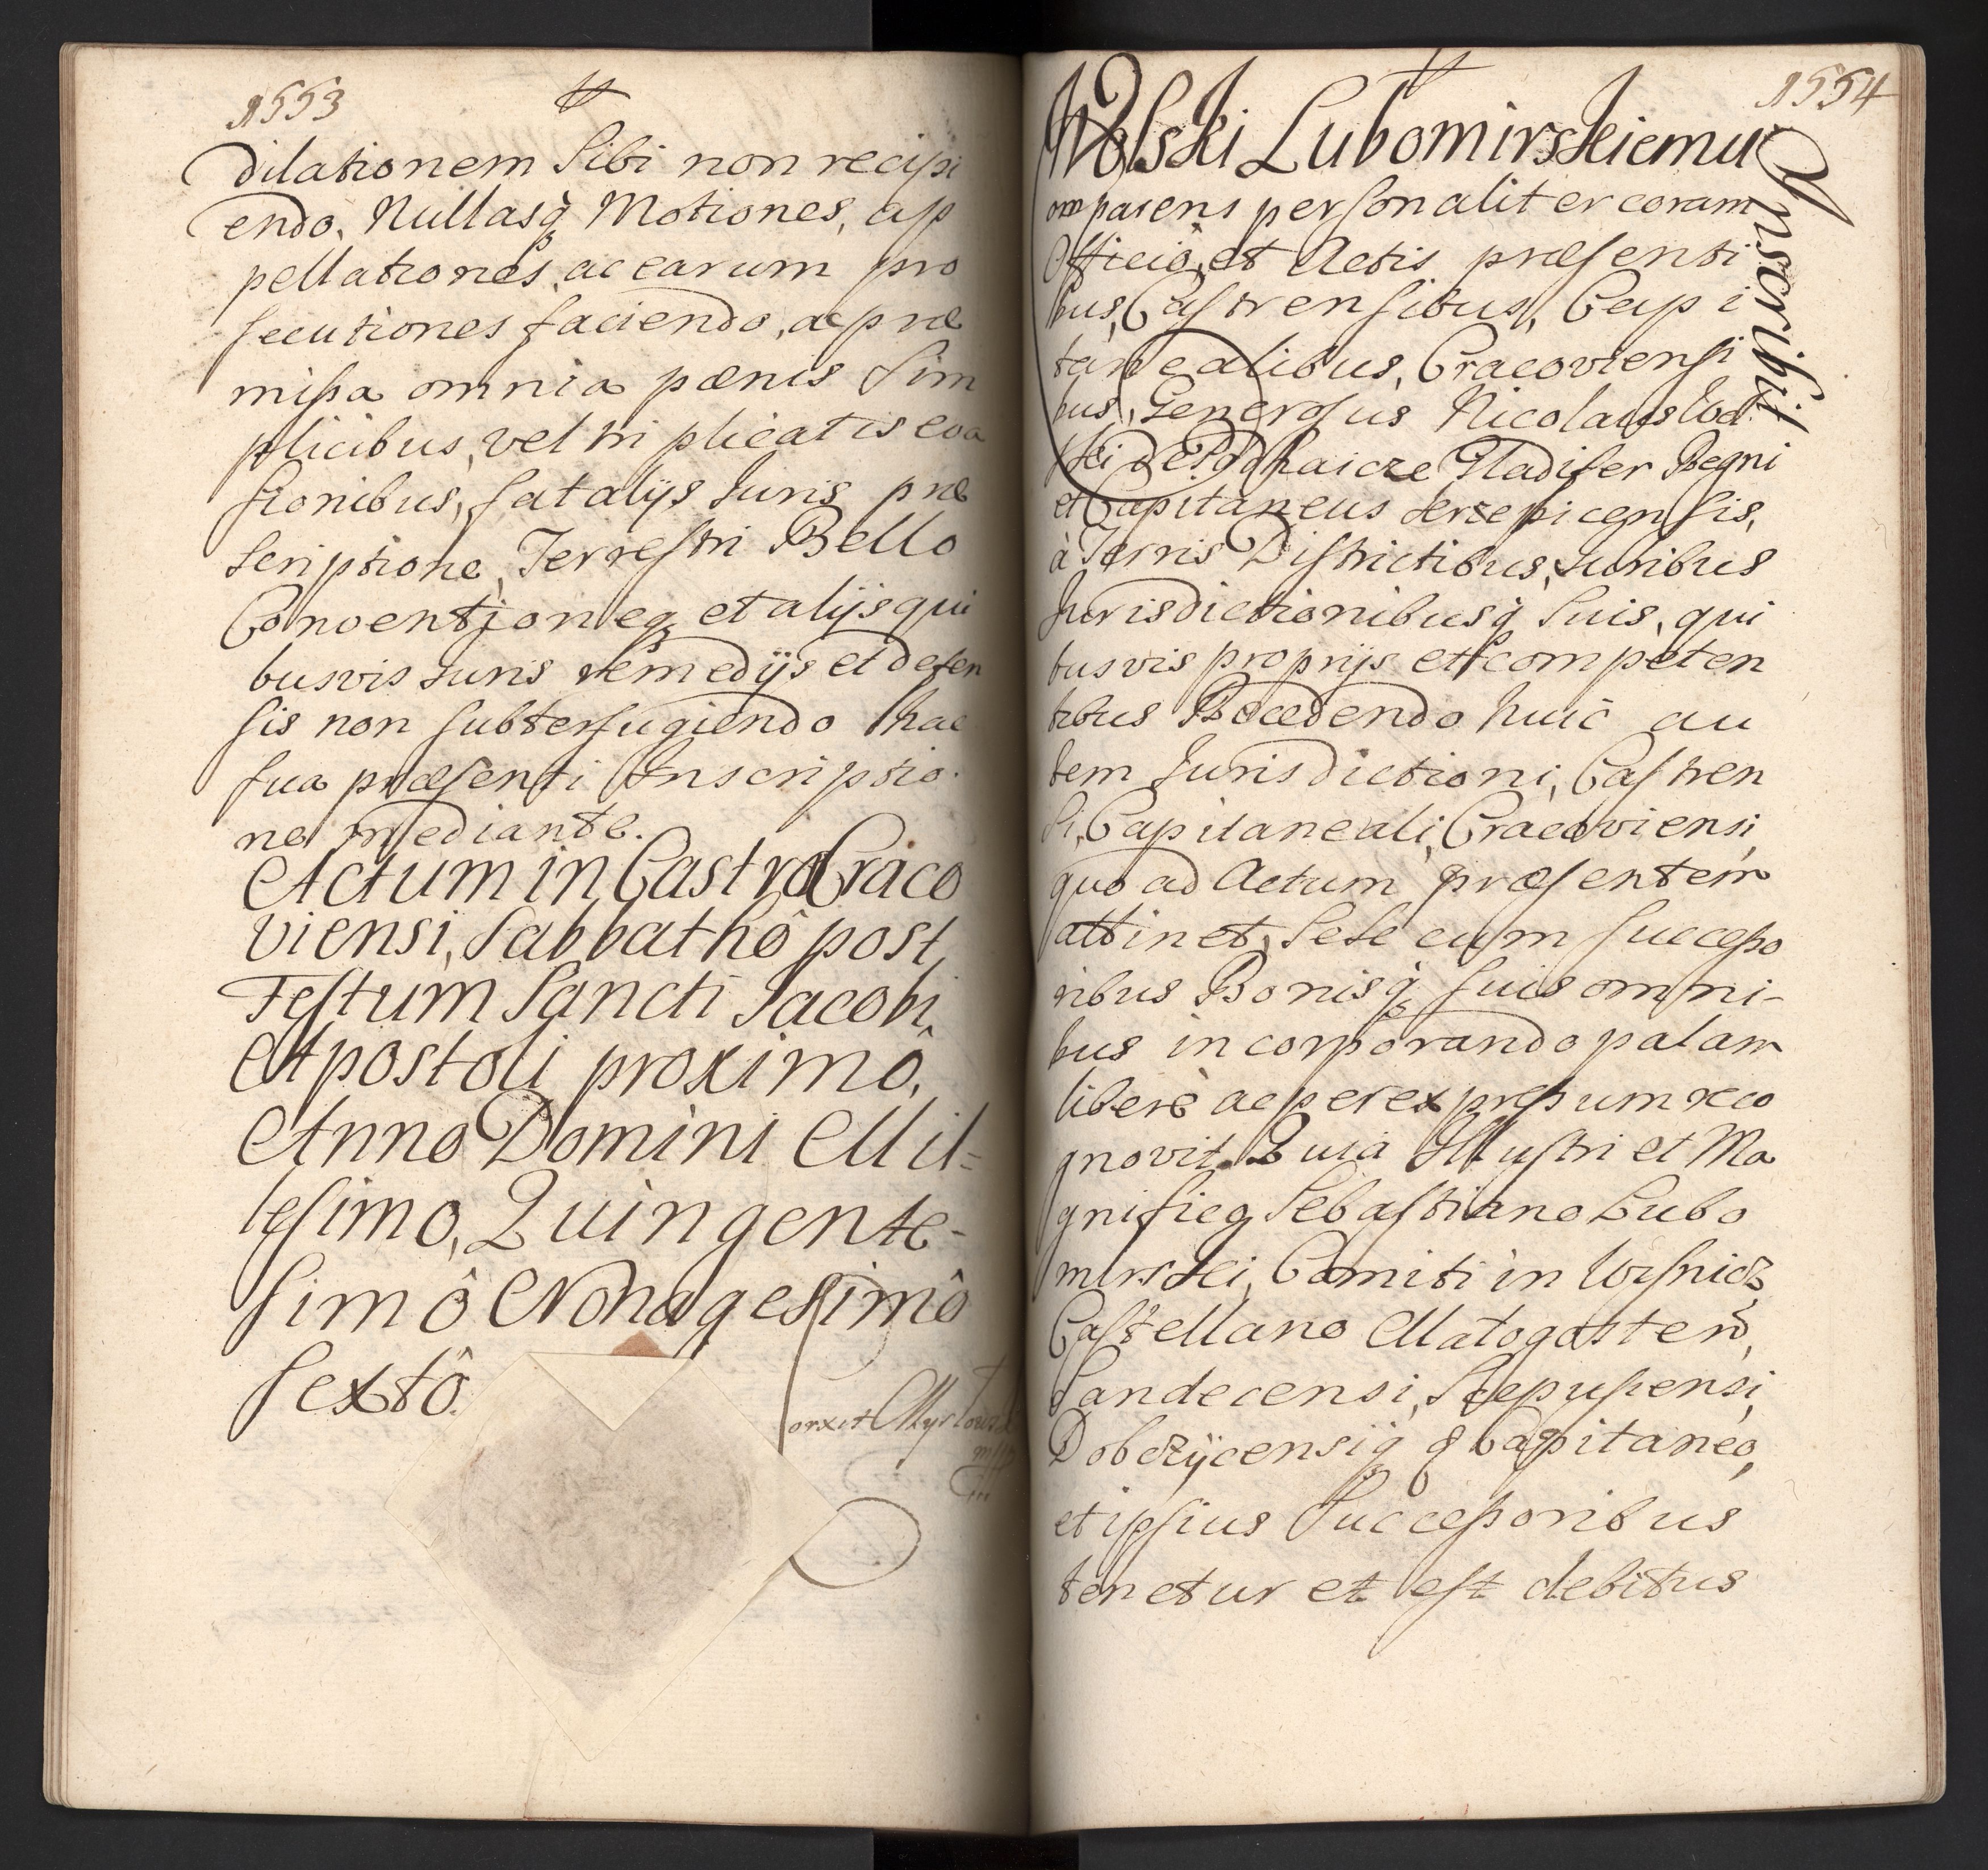 1553
dilationem Sibi non recipi
endo, Nullasq́ Motiones, ap
pellationes, ac earum pro
secutiones faciendo, ac præ
missa omnia pœnis Sim
plicibus, vel tri plicatis eva
sionibus, fatalijs Juris præ
scriptione, Terrestri Bello
Conventioneq et alijs qui
busvis Juris remedijs et defen
sis non subterfugiendo hac
sua præsenti Inscriptio
ne mediante.
Actum in Castro Craco
viensi, Sabbathô post
Festum Sancti Jacobi
Apostoli proximô,
Anno Domini Mil=
lesimo, Quingente-
simô Nonagesimô
sextô.
1554
Wolski Lubomirskiemu
Inscribit
omparens personaliter coram
Officiô, et Actis præsenti
bus, Castrensibus, Capi
tanealibus, Cracoviensi
bus, Generosus Nicolaus Wol
ski de Podhaicze Gladifer Regni
et Capitaneus Krzepicensis,
à Terris Districtibus, Juribus
Jurisdictionibusq́ Suis, qui
busvis proprijs et competen
tibus Recedendo huic au
tem Jurisdictioni, Castren
si, Capitaneali, Cracoviensi,
quo ad Actum præsentem
attinet, Sese cum successo
ribus Bonisq́ suis omni-
bus incorporando palam
liberè ac per expressum reco
gnovit. Quia Illustri et Ma
gnifico Sebastiano Lubo
mirski, Comiti in Wisnicz,
Castellano Malogosten,
Sandecensi, Scepusiensi,
Dobczÿcensiq q Capitaneo,
et ipsius Successoribus
tenetur et est debitus